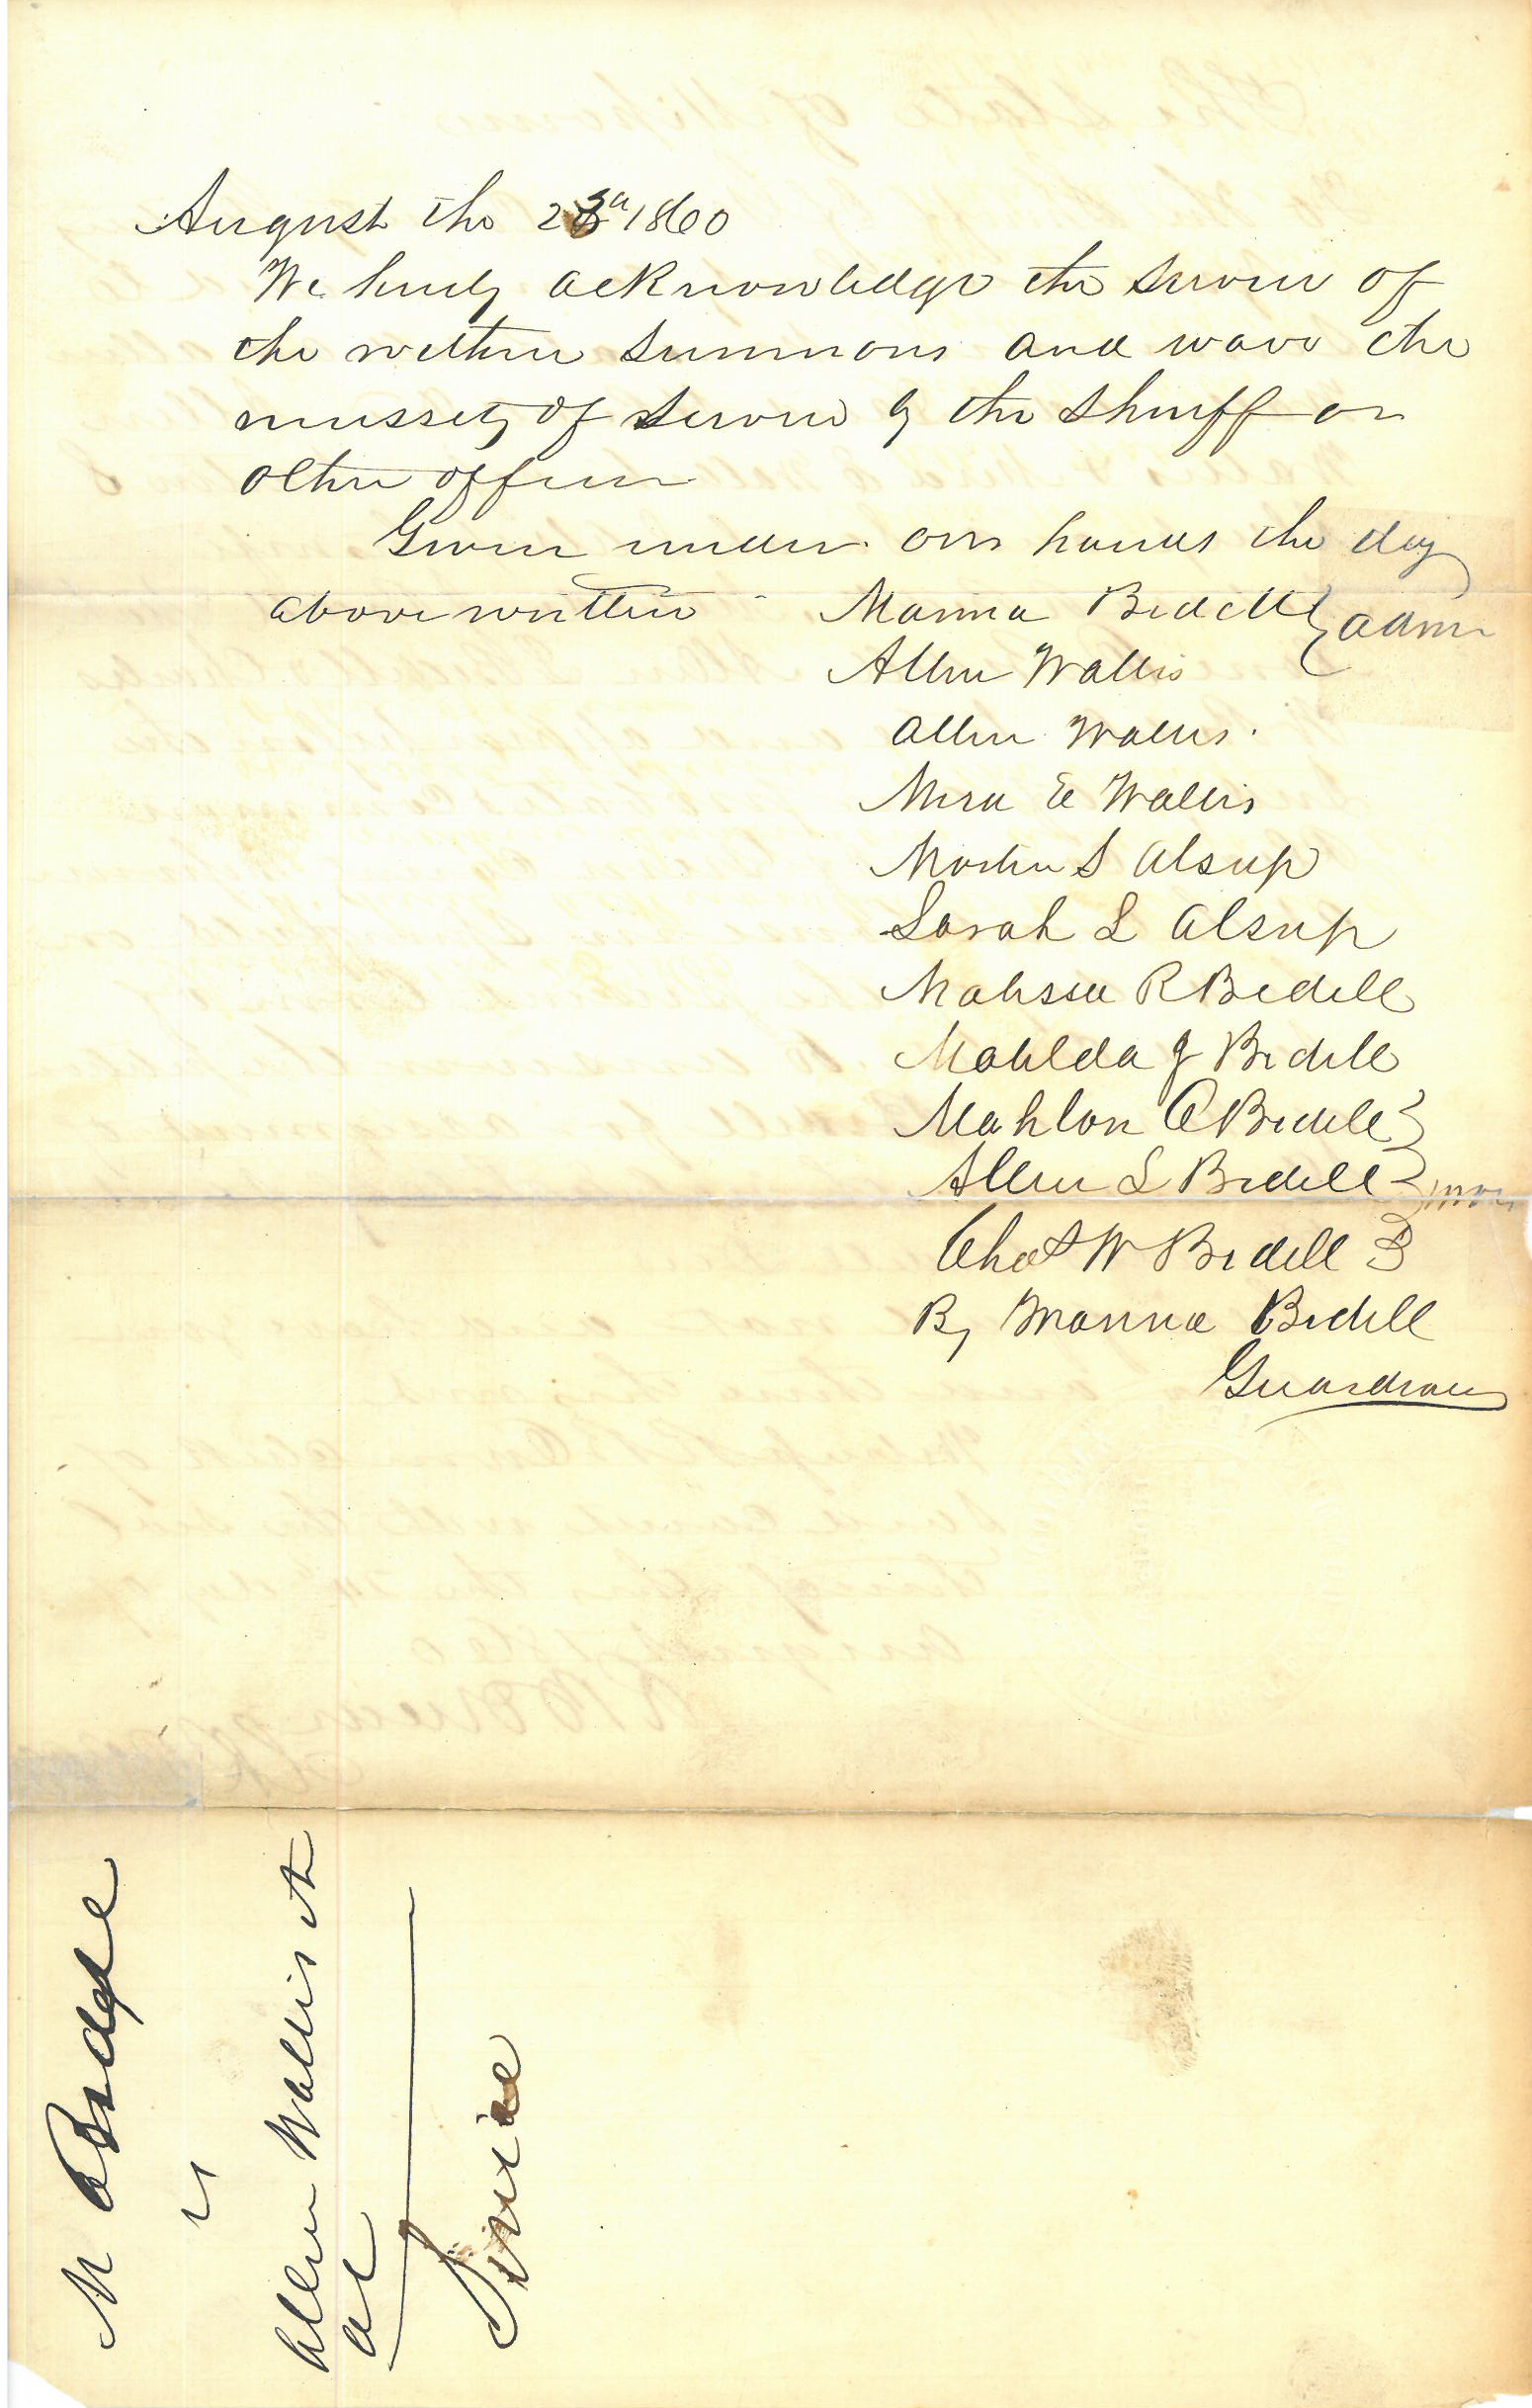 August the 23d 1860
We hereby acknowledge the service of
the within summons and wave the
necessety of service by the Sheriff or
other officer
Given under our hands the day
above written Marina Bedell } admr
Allen Wallis
Allen Wallis.
E Wallis
S Alsup
Sarah L Alsup
R Bedell
J Bedell
Mahlon C Bedell
Allen L Bedell
Chas W Bedell
By Bedell
Guardian
M
vs
Allen Wallis et
al